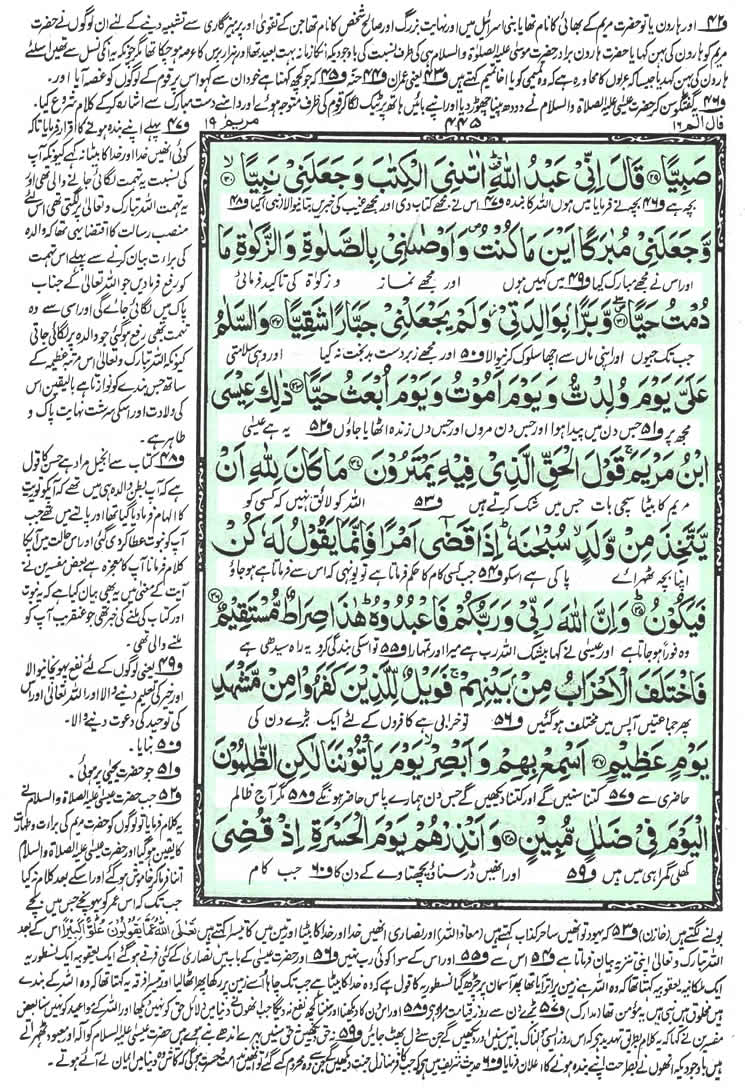 و۴۲ اور ہارون یا تو حضرت مریم کے بھائی کا نام تھا یا بنی اسرائیل میں اور نہایت بزرگ اور صالح شخص کا نام تھا جن کے تقویٰ اور پرہیزگاری سے تشبیہ دینے کے لئے ان لوگوں نے حضرت
مریم کو ہارون کی بہن کہا یا حضرت ہارون برادر حضرت موسیٰ علیہ الصلاۃ و السلام ہی کی طرف نسبت کی باوجودیکہ انکا زمانہ بہت بعید تھا اور ہزار برس کا عرصہ ہو چکا تھا مگر چونکہ یہ انکی نسل سے تھیں اسلئے
ہارون کی بہن کہدیا جیسا کہ عربوں کا محاورہ ہے کہ وہ تمیمی کو یا اخا تمیم کہتے ہیں و۴۳ یعنی عمران و۴۴ حنّہ و۴۵ کہ جو کچھ کہنا ہے خود ان سے کہو اس پر قوم کے لوگوں کو غصہ آیا اور۔
و۴۶ یہ گفتگو سن کر حضرت عیسیٰ علیہ الصلاۃ و السلام نے دودھ پینا چھوڑ دیا اور اپنے بائیں ہاتھ پر ٹیک لگا کر قوم کی طرف متوجہ ہوئے اور اپنے دست مبارک سے اشارہ کر کے کلام شروع کیا۔
قال الم ۱۶
۴۴۵
مریم ۱۹
صَبِیًّا ﴿۲۹﴾ قَالَ اِنِّیْ عَبْدُ اللّٰهِ ؕ اٰتٰىنِیَ الْكِتٰبَ وَ جَعَلَنِیْ نَبِیًّا ﴿۳۰﴾
بچہ ہے و۴۶ بچہ نے فرمایا میں ہوں اللہ کا بندہ و۴۷ اس نے مجھے کتاب دی اور مجھے غیب کی خبریں بتانے والا (نبی) کیا و۴۸
وَّ جَعَلَنِیْ مُبٰرَكًا اَیْنَ مَا كُنْتُ ۪ وَ اَوْصٰنِیْ بِالصَّلٰوةِ وَ الزَّكٰوةِ مَا
اور اس نے مجھے مبارک کیا و۴۹ میں کہیں ہوں اور مجھے نماز و زکوٰۃ کی تاکید فرمائی
دُمْتُ حَیًّا ﴿۳۱﴾ وَّ بَرًّۢا بِوَالِدَتِیْ ؗ وَ لَمْ یَجْعَلْنِیْ جَبَّارًا شَقِیًّا ﴿۳۲﴾ وَ السَّلٰمُ
جب تک جیوں اور اپنی ماں سے اچھا سلوک کرنیوالا و۵۰ اور مجھے زبردست بدبخت نہ کیا اور وہی سلامتی
عَلَیَّ یَوْمَ وُلِدْتُّ وَ یَوْمَ اَمُوْتُ وَ یَوْمَ اُبْعَثُ حَیًّا ﴿۳۳﴾ ذٰلِكَ عِیْسَى
مجھ پر و۵۱ جس دن میں پیدا ہوا اور جس دن مروں اور جس دن زندہ اٹھایا جاؤں و۵۲ یہ ہے عیسیٰ
ابْنُ مَرْیَمَ ۚ قَوْلَ الْحَقِّ الَّذِیْ فِیْهِ یَمْتَرُوْنَ ﴿۳۴﴾ مَا كَانَ لِلّٰهِ اَنْ
مریم کا بیٹا سچی بات جس میں شک کرتے ہیں و۵۳ اللہ کو لائق نہیں کہ کسی کو
یَّتَّخِذَ مِنْ وَّلَدٍ ۙ سُبْحٰنَهٗ ؕ اِذَا قَضٰۤى اَمْرًا فَاِنَّمَا یَقُوْلُ لَهٗ كُنْ
اپنا بچہ ٹھہرائے پاکی ہے اسکو و۵۴ جب کسی کام کا حکم فرماتا ہے تو یونہی کہ اس سے فرماتا ہے ہو جاؤ
فَیَكُوْنُ ﴿۳۵﴾ وَ اِنَّ اللّٰهَ رَبِّیْ وَ رَبُّكُمْ فَاعْبُدُوْهُ ؕ هٰذَا صِرَاطٌ مُّسْتَقِیْمٌ ﴿۳۶﴾
وہ فوراً ہو جاتا ہے اور عیسیٰ نے کہا بیشک اللہ رب ہے میرا اور تمہارا و۵۵ تو اسکی بندگی کرو یہ راہ سیدھی ہے
فَاخْتَلَفَ الْاَحْزَابُ مِنْۢ بَیْنِهِمْ ۚ فَوَیْلٌ لِّلَّذِیْنَ كَفَرُوْا مِنْ مَّشْهَدِ
پھر جماعتیں آپس میں مختلف ہو گئیں و۵۶ تو خرابی ہے کافروں کے لئے ایک بڑے دن کی
یَوْمٍ عَظِیْمٍ ﴿۳۷﴾ اَسْمِعْ بِهِمْ وَ اَبْصِرْ ۙ یَوْمَ یَاْتُوْنَنَا لٰكِنِ الظّٰلِمُوْنَ
حاضری سے و۵۷ کتنا سنیں گے اور کتنا دیکھیں گے جس دن ہمارے پاس حاضر ہونگے و۵۸ مگر آج ظالم
الْیَوْمَ فِیْ ضَلٰلٍ مُّبِیْنٍ ﴿۳۸﴾ وَ اَنْذِرْهُمْ یَوْمَ الْحَسْرَةِ اِذْ قُضِیَ
کھلی گمراہی میں ہیں و۵۹ اور انھیں ڈر سناؤ پچھتاوے کے دن کا و۶۰ جب کام
و۴۷ پہلے اپنے بندہ ہونے کا اقرار فرمایا تاکہ
کوئی انھیں خدا اور خدا کا بیٹا نہ کہے کیونکہ آپ
کی نسبت یہ تہمت لگائی جانے والی تھی اور
یہ تہمت اللہ تبارک و تعالیٰ پر لگتی تھی اس لئے
منصب رسالت کا اقتضا یہی تھا کہ والدہ
کی براءت بیان کرنے سے پہلے اس تہمت
کو رفع فرمادیں جو اللہ تعالیٰ کے جناب
پاک میں لگائی جائے گی اور اسی سے وہ
تہمت بھی رفع ہوگئی جو والدہ پر لگائی جاتی
کیونکہ اللہ تبارک و تعالیٰ اس مرتبہ عظیمہ کے
ساتھ جس بندے کو نوازتا ہے بالیقین اس
کی ولادت اور اسکی سرشت نہایت پاک و
طاہر ہے۔
و۴۸ کتاب سے انجیل مراد ہے حسن کا قول
ہے کہ آپ بطن والدہ ہی میں تھے کہ آپکو توریت
کا الہام فرمادیا گیا تھا اور پالنے میں تھے جب
آپ کو نبوت عطا کردی گئی اور اس حالت میں آپکا
کلام فرمانا آپ کا معجزہ ہے بعض مفسرین نے
آیت کے معنی میں یہ بھی بیان کیا ہے کہ یہ نبوت
اور کتاب کی ملنے کی خبر تھی جو عنقریب آپ کو
ملنے والی تھی۔
و۴۹ یعنی لوگوں کے لئے نفع پہونچانیوالا
اور خیر کی تعلیم دینے والا اور اللہ تعالیٰ اور اس
کی توحید کی دعوت دینے والا۔
و۵۰ بنایا۔
و۵۱ جو حضرت یحییٰ پر ہوئی۔
و۵۲ جب حضرت عیسیٰ علیہ الصلاۃ و السلام نے
یہ کلام فرمایا تو لوگوں کو حضرت مریم کی براءت و طہارت
کا یقین ہوگیا اور حضرت عیسیٰ علیہ الصلاۃ و السلام
اتنا فرما کر خاموش ہوگئے اور اسکے بعد کلام نہ کیا
جب تک کہ اس عمر کو پہونچے جس میں بچے
بولنے لگتے ہیں (خازن) و۵۳ کہ یہود تو انھیں ساحر کذاب کہتے ہیں (معاذ اللہ) اور نصاریٰ انھیں خدا اور خدا کا بیٹا اور تین میں کا تیسرا کہتے ہیں تَعَالَى اللّٰهُ عَمَّا یَقُوْلُوْنَ عُلُوًّا كَبِیْرًا اس کے بعد
اللہ تبارک و تعالیٰ اپنی تنزیہ بیان فرماتا ہے و۵۴ اس سے و۵۵ اور اس کے سوا کوئی رب نہیں و۵۶ اور حضرت عیسیٰ کے باب میں نصاریٰ کے کئی فرقے ہوگئے ایک یعقوبیہ ایک نسطوریہ
ایک ملکانیہ یعقوبیہ کہتا تھا کہ وہ اللہ ہے زمین پر اتر آیا تھا پھر آسمان پر چڑھ گیا نسطوریہ کا قول ہے کہ وہ خدا کا بیٹا ہے جب تک چاہا اسے زمین پر رکھا پھر اٹھالیا اور تیسرا فرقہ یہ کہتا تھا کہ وہ اللہ کے بندے
مخلوق ہیں نبی ہیں یہ مؤمن تھا (مدارک) و۵۷ بڑے دن سے روز قیامت مراد ہے و۵۸